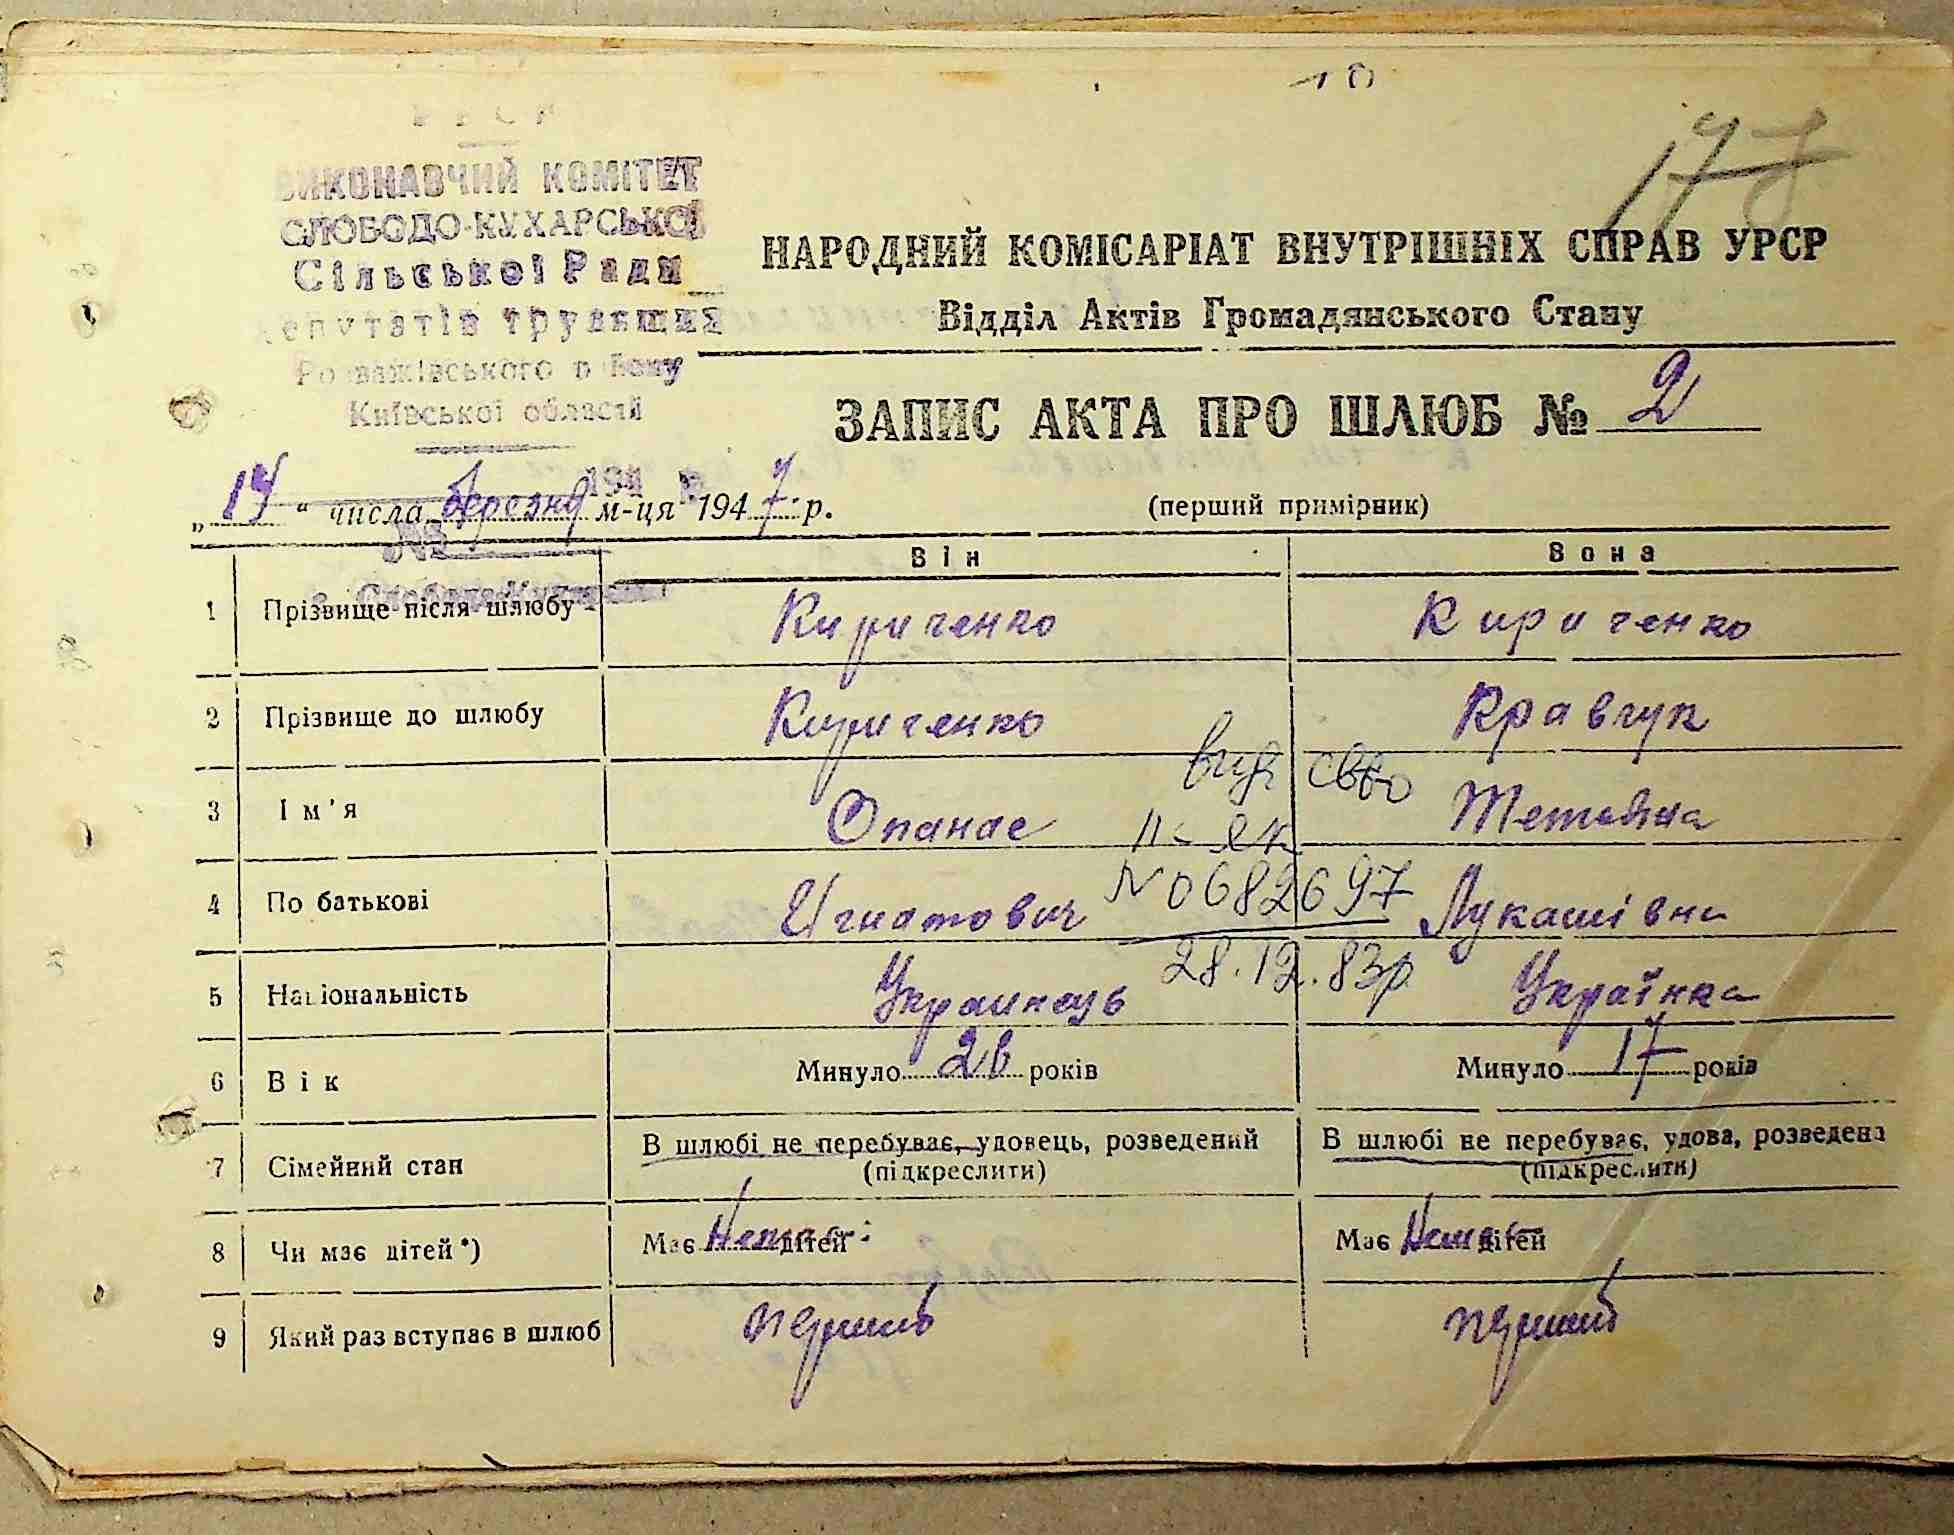 УРСР
ВИКОНАВЧИЙ КОМІТЕТ
СЛОБОДО-КУХАРСЬКОЇ
Сільської Ради
депутатів трудящих
Розважівського р-йону
Київської області
194 р.
№
с. Слобода-Кухарська
10
177
НАРОДНИЙ КОМІСАРІАТ ВНУТРІШНІХ СПРАВ УРСР
Відділ Актів Громадянського Стану
ЗАПИС АКТА ПРО ШЛЮБ № 2
„14“ числа березня м-ця 1947 р. (перший примірник)
Він Вона
1 Прізвище після шлюбу Кириченко Кириченко
2 Прізвище до шлюбу Кириченко Кравчук
вид св-во
3 Ім'я Опанас Тетяна
II-ЯК
4 По батькові Игнатович N 0682697 Лукашівна
28.12.83р.
5 Національність Украинець Українка
6 Вік Минуло 26 років Минуло 17 років
7 Сімейний стан В шлюбі не перебуває, удовець, розведений В шлюбі не перебуває, удова, розведена
(підкреслити) (підкреслити)
8 Чи має дітей*) Має Немає дітей Має Немає дітей
9 Який раз вступає в шлюб перший перший